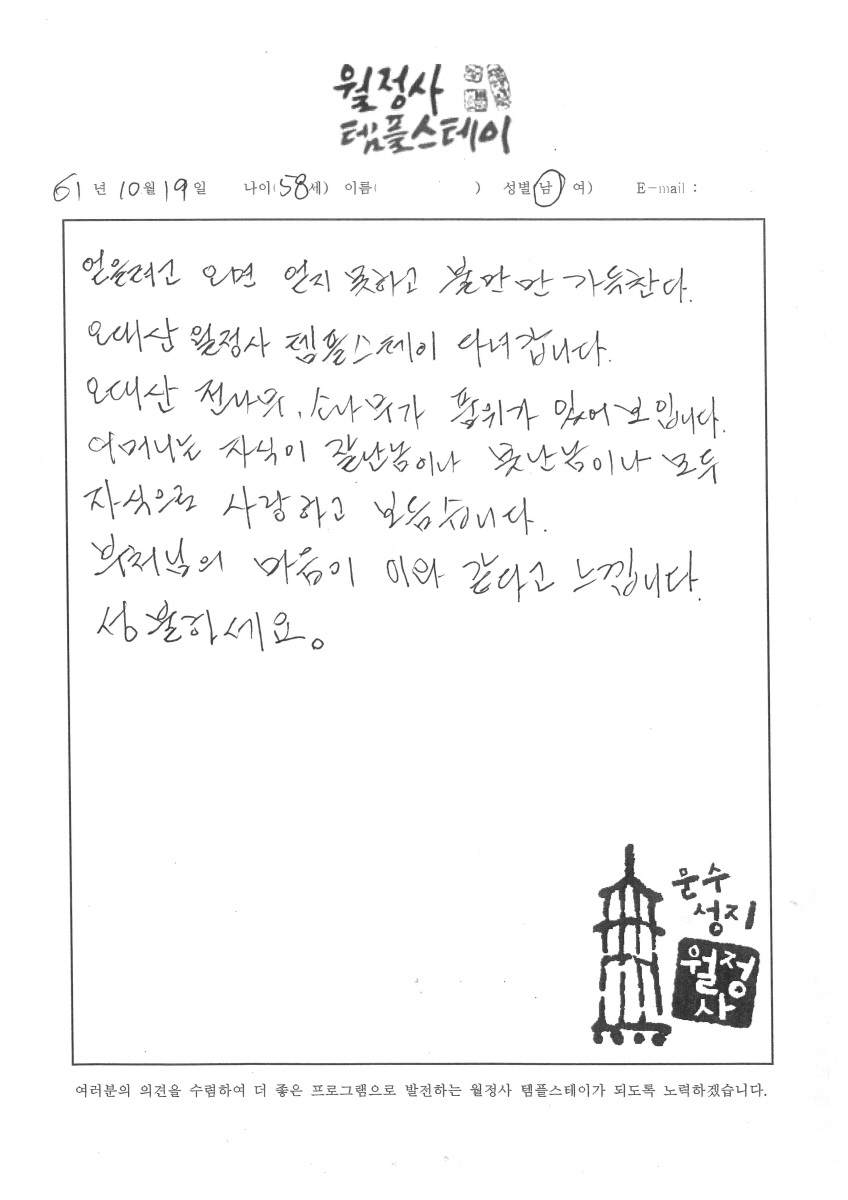 월정사
템플스테이
61년 10월 19일 나이(58세) 이름( ) 성별(남 여) E-mail :
얻을려고 오면 얻지 못하고 불만만 가득찬다.
오대산 월정사 템플스테이 다녀갑니다.
오대산 전나무, 소나무가 품위가 있어 보입니다.
어머니는 자식이 잘난놈이나 못난놈이나 모두
자식으로 사랑하고 보듬습니다.
부처님의 마음이 이와 같다고 느낍니다.
성불하세요。
문수
성지
월정
사
여러분의 의견을 수렴하여 더 좋은 프로그램으로 발전하는 월정사 템플스테이가 되도록 노력하겠습니다.